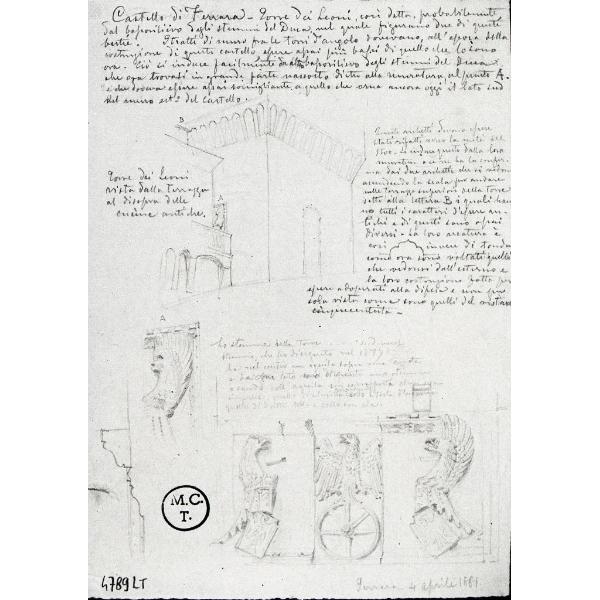 Castello di Ferrara - Torre dei Leoni, così detta, probabilmente
dal bassorilievo degli stemmi del Duca nel quale figurano due di queste
bestie. I tratti di muro fra le torri d'angolo dovevano, all'epoca della
costruzione di questo castello essere assai più bassi di quello che lo sono
ora. Ciò si induce facilmente dal bassorilievo degli stemmi del Duca
che ora trovasi in grande parte nascosto dietro alla muratura, al punto A.
e che doveva essere assai somigliante a quello che orna ancora oggi il lato sud
del muro est.º del Castello.
B
Torre dei Leoni
vista dalla terrazza
al disopra delle
cucine antiche.
A
Questi archetti devono essere
stati rifatti verso la metà del
1500. Si induce questo dalla loro
muratura e ce ne ha la confer-
ma dai due archetti che si vedono
ascendendo la scala per andare
sulle terrazze superiori della torre
sotto alla lettera B i quali han-
no tutti i caratteri d'essere an-
tichi e di questi sono assai
diversi. La loro arcatura è
così invece di tonda
come ora sono voltati quelli
che vedonsi dall'esterno e
la loro costruzione fatta per
essere adoperati alla difesa e non per
sola vista come sono quelli del restauro
cinquecentista.
A
Lo stemma della Torre
stemma, che ho disegnato nel 1877
M.C.
T.
4789 LT
Ferrara 4 aprile 1881.